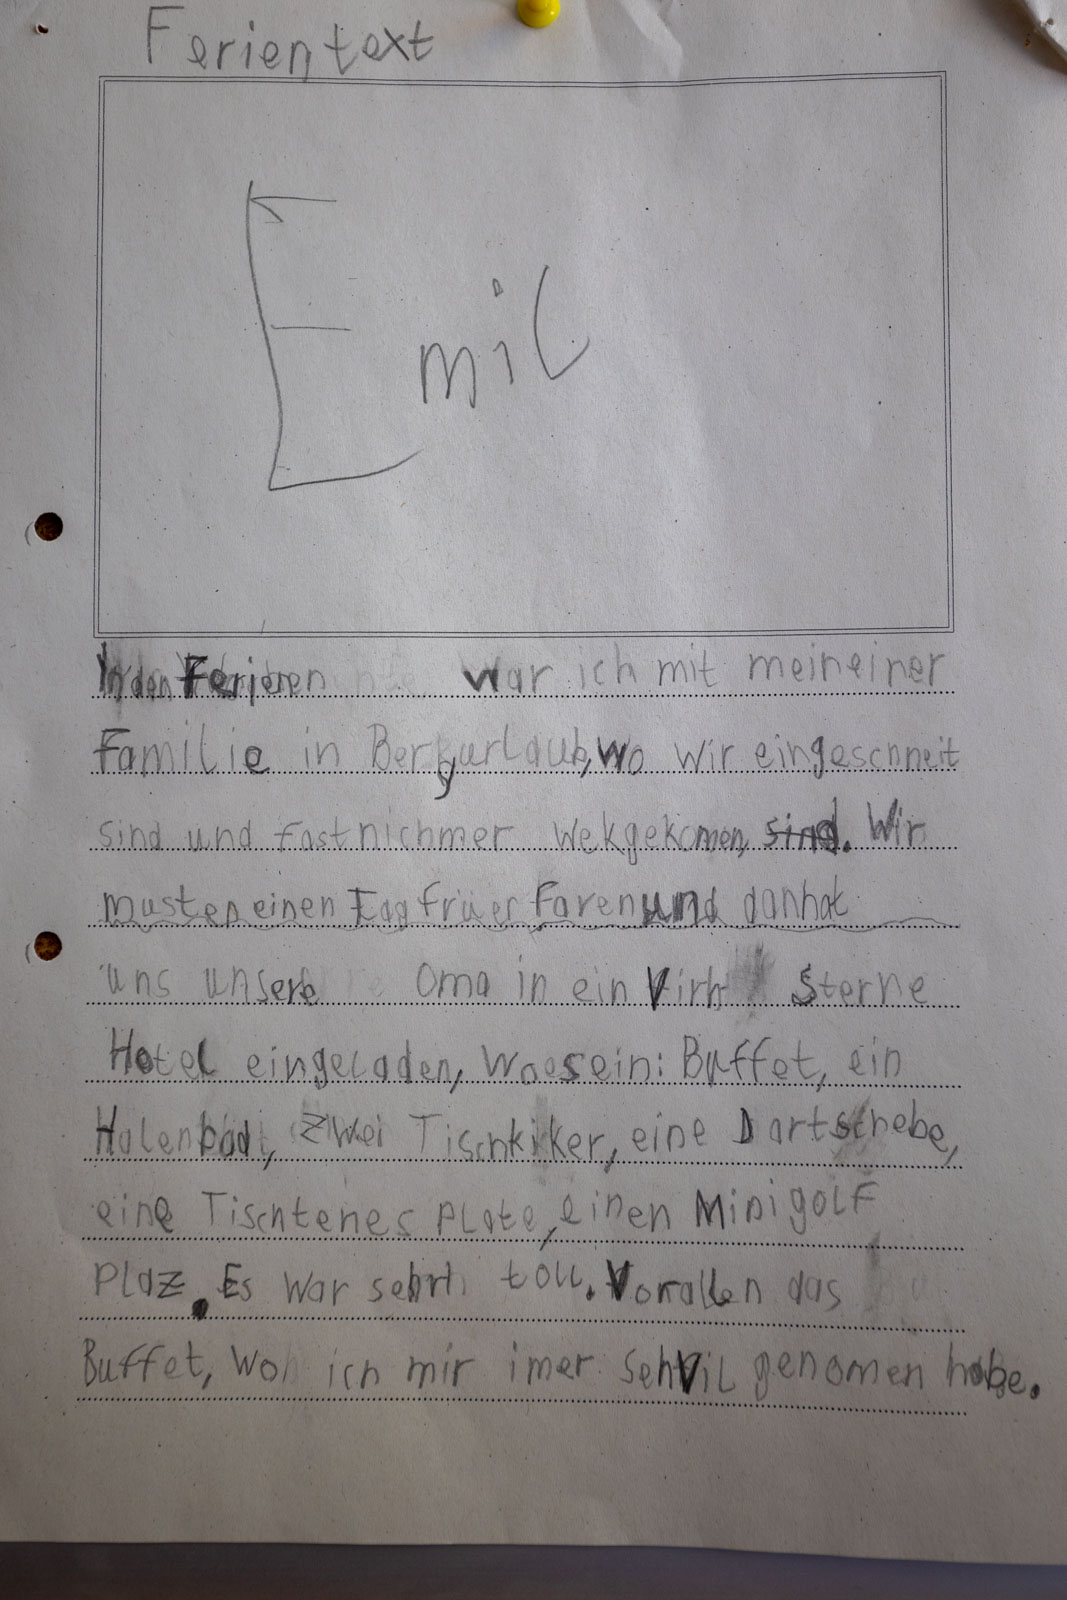 Ferientext
Emil
In den Ferjen war ich mit meineiner
Familie in Bergurlaub, wo wir eingeschneit
sind und fast nichmer wekgekomen, sind. Wir
musten einen Tag früer Faren und dan hat
uns unsere Oma in ein Virh Sterne
Hotel eingeladen, wo es ein: Buffet, ein
Halenbad, zwei Tischkiker, eine Dartschebe,
eine Tischtenes Plate, einen Minigolf
Plaz. Es war sehr toll. Vorallen das
Buffet, wo ich mir imer sehvil genomen habe.